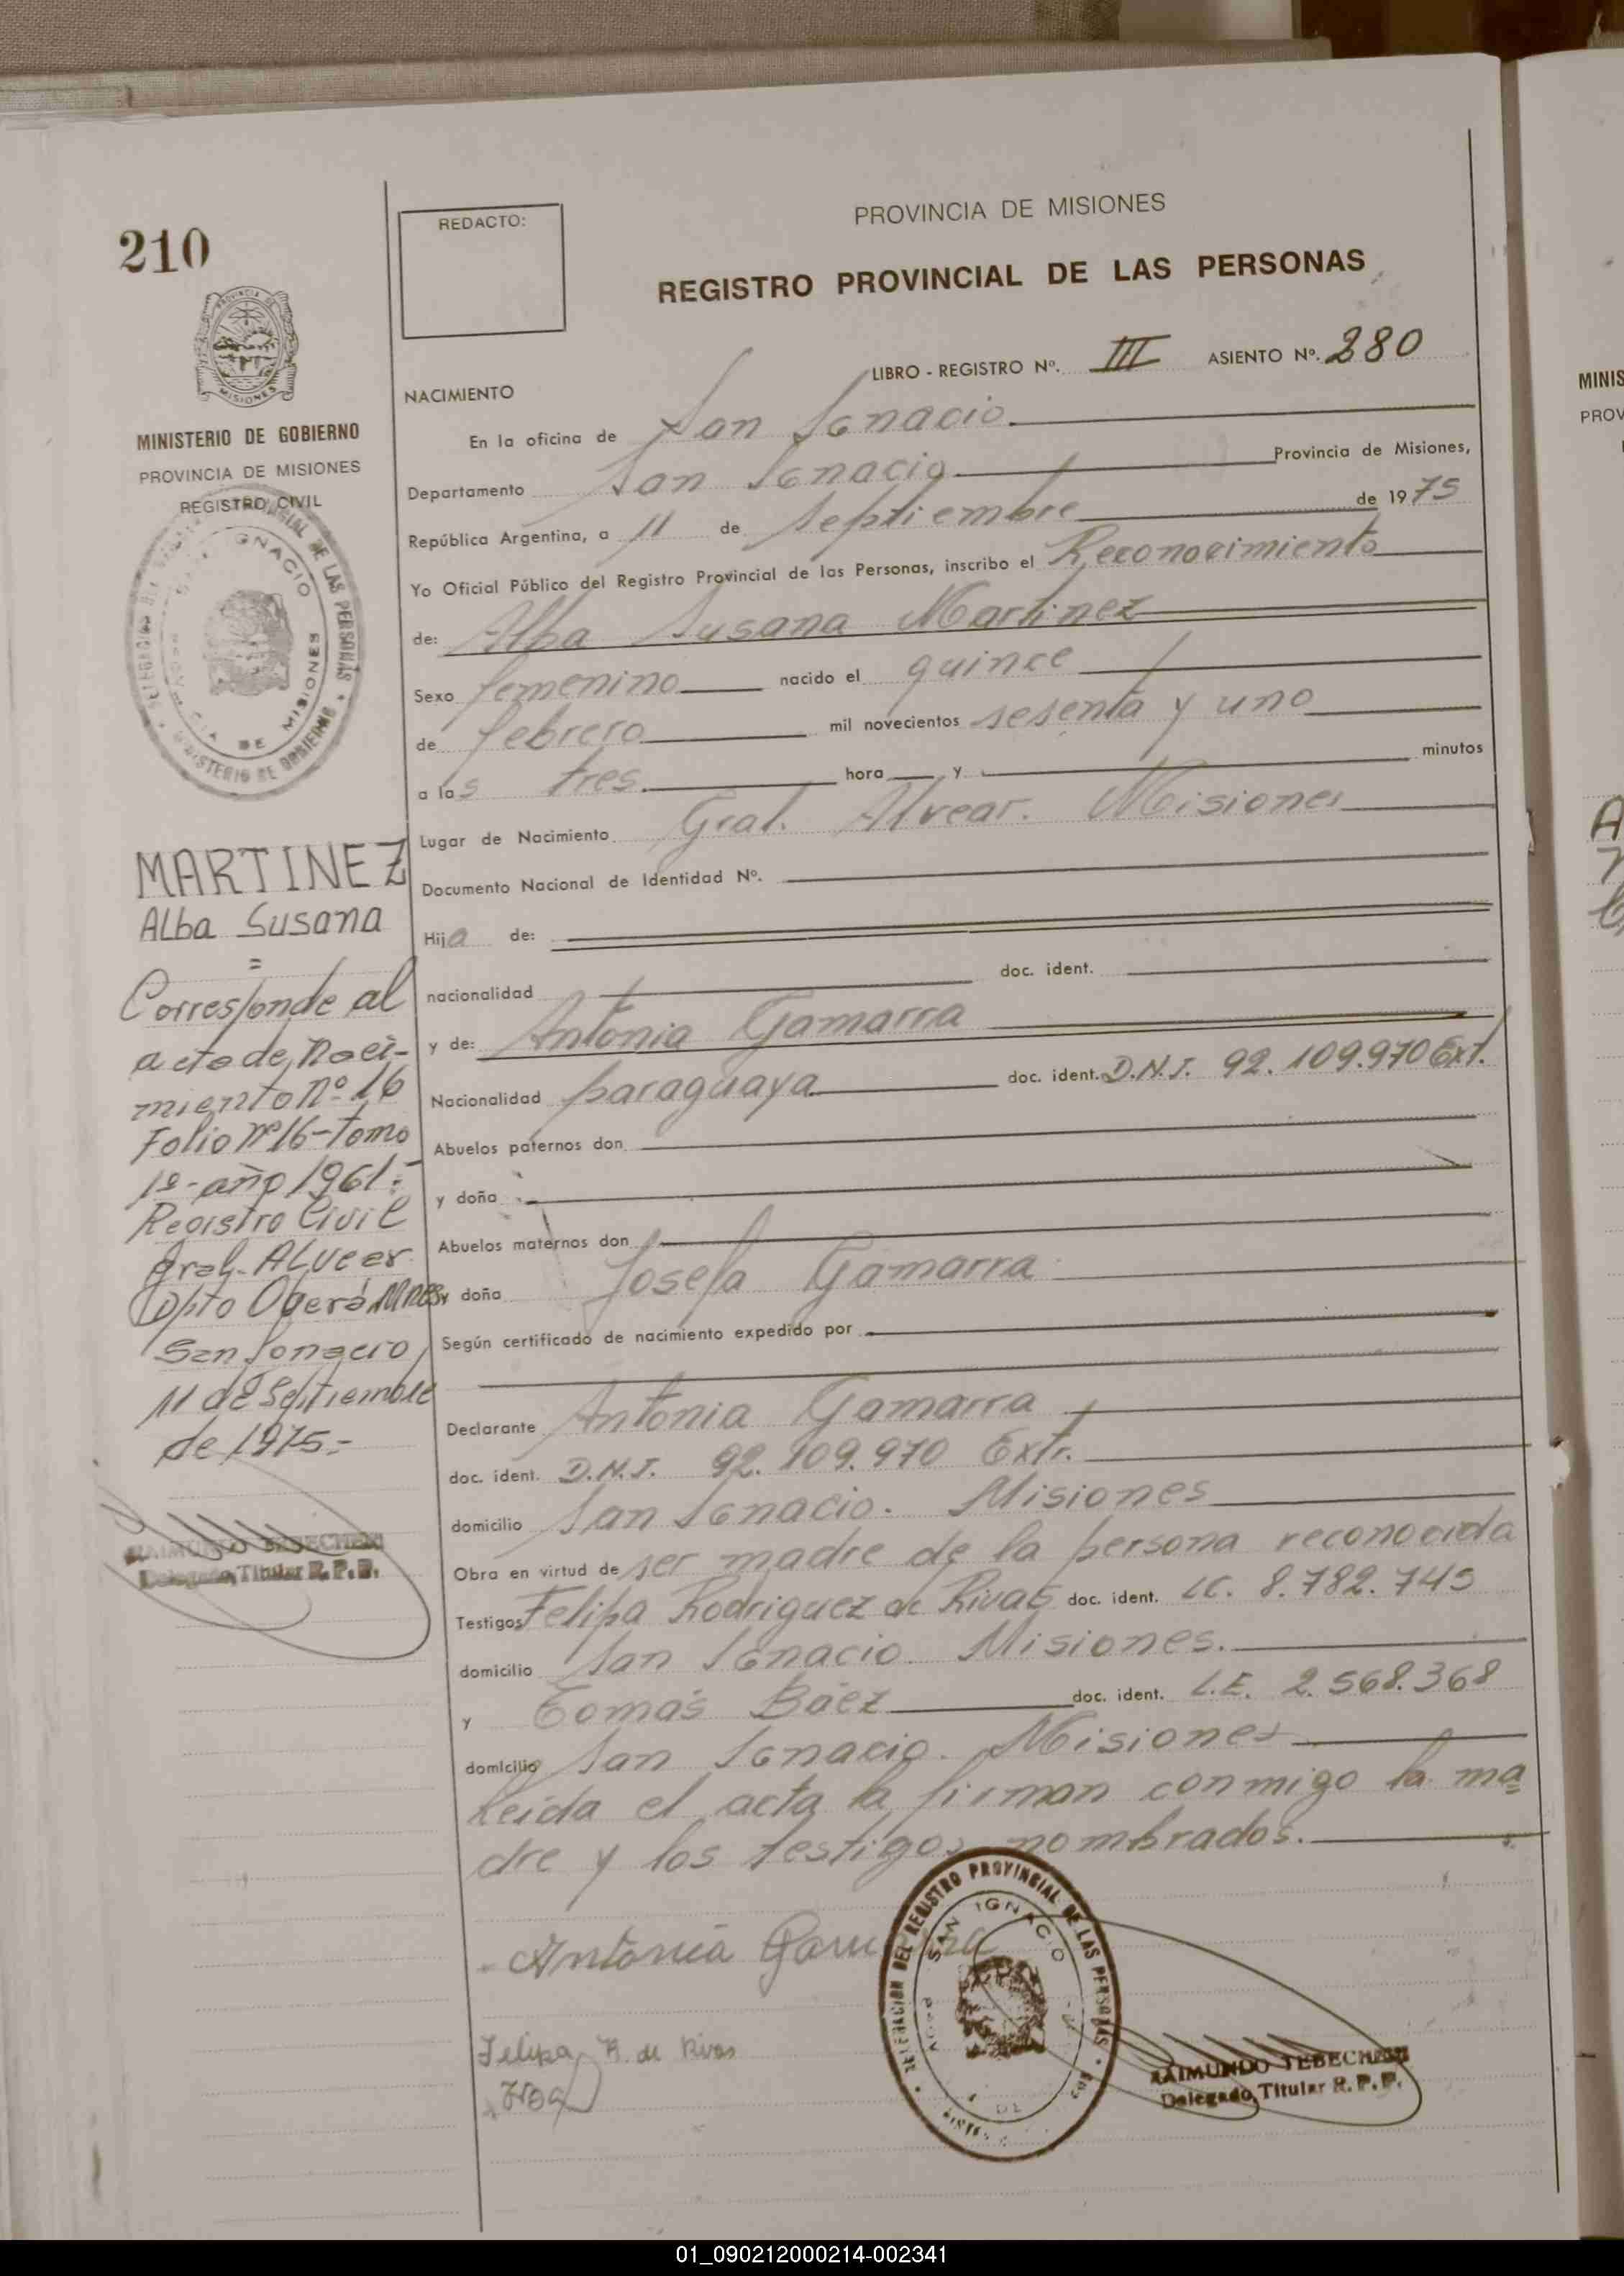 210
REDACTO:
PROVINCIA DE MISIONES
REGISTRO PROVINCIAL DE LAS PERSONAS
MINISTERIO DE GOBIERNO
PROVINCIA DE MISIONES
REGISTRO CIVIL
LIBRO - REGISTRO Nº. III ASIENTO Nº. 280
NACIMIENTO
En la oficina de San Ignacio
Departamento San Ignacio Provincia de Misiones,
República Argentina, a 11 de Septiembre de 1975
Yo Oficial Público del Registro Provincial de las Personas, inscribo el Reconocimiento
de: Alba Susana Martinez
Sexo femenino nacido el quince
de febrero mil novecientos sesenta y uno
a las tres hora y minutos
Lugar de Nacimiento Gral. Alvear. Misiones
Documento Nacional de Identidad Nº.
Hija de:
nacionalidad doc. ident.
y de: Antonia Gamarra
Nacionalidad paraguaya doc. ident. D.N.I. 92.109.970 Ext.
Abuelos paternos don
y doña
Abuelos maternos don
y doña Josefa Gamarra
Según certificado de nacimiento expedido por
Declarante Antonia Gamarra
doc. ident. D.N.I. 92.109.970 Extr.
domicilio San Ignacio. Misiones
Obra en virtud de ser madre de la persona reconocida
Testigos Felipa Rodriguez de Rivas doc. ident. LC. 8.782.745
domicilio San Ignacio. Misiones.
y Tomás Báez doc. ident. L.E. 2.568.368
domicilio San Ignacio. Misiones
Leída el acta la firman conmigo la ma=
dre y los testigos nombrados.
MARTINEZ
Alba Susana
=
Corresponde al
acta de Naci-
miento nº 16
Folio Nº 16-Tomo
1º-año 1961.-
Registro Civil
Gral. ALvear
Dpto Oberá Mnes.
San Ignacio,
11 de Septiembre
de 1975.-
RAIMUNDO TEBECHERI
Delegado Titular R. P. P.
Antonia Gamarra
Felipa R. de Rivas
DELEGACION DEL REGISTRO PROVINCIAL DE LAS PERSONAS
SAN IGNACIO
RAIMUNDO TEBECHERI
Delegado Titular R. P. P.
01_090212000214-002341